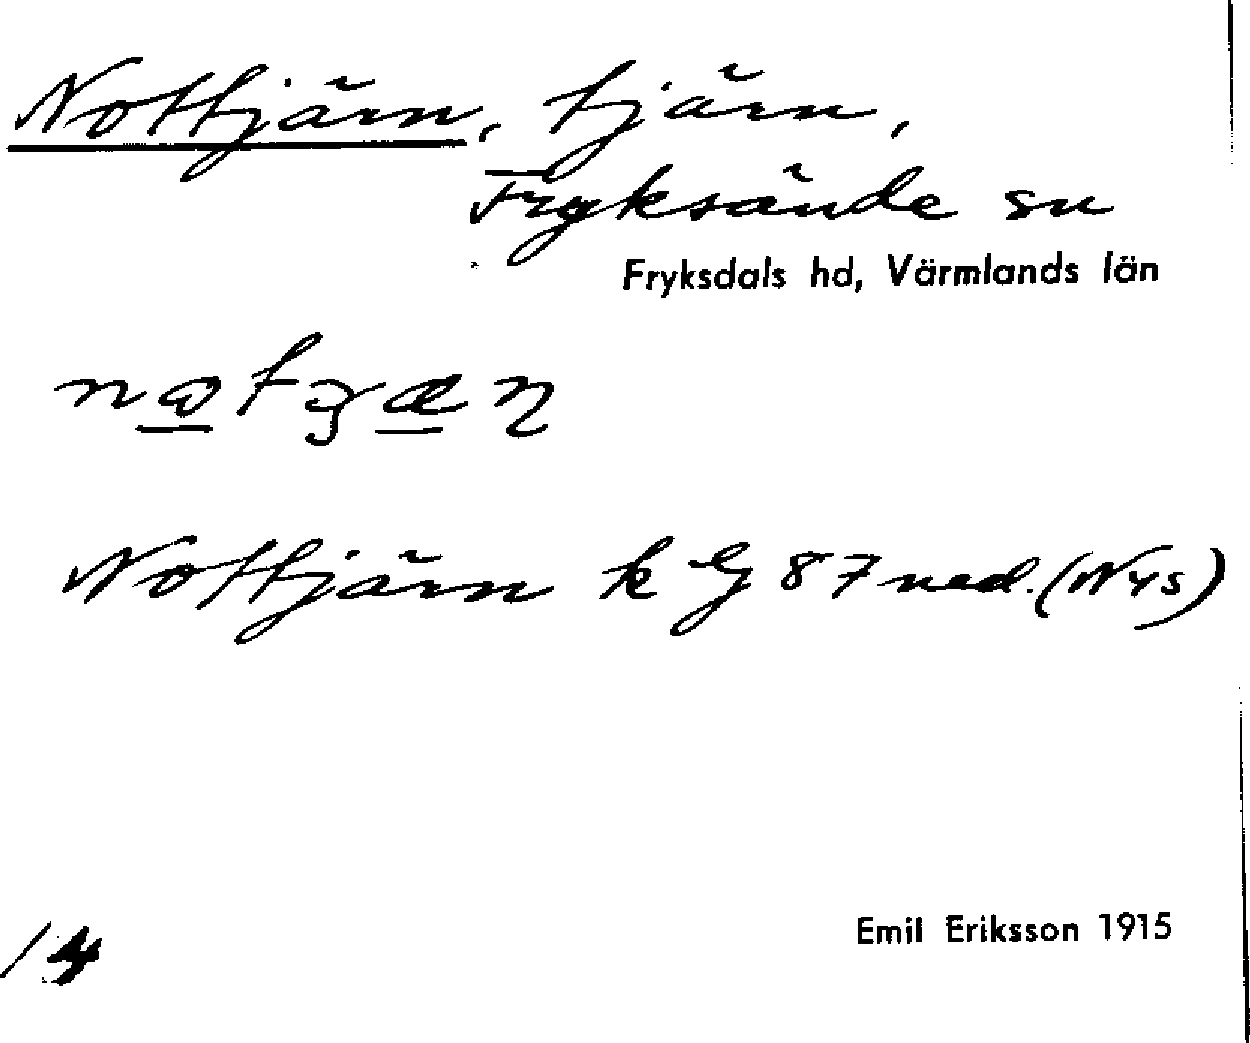 Nottjärn, tjärn,
Fryksände sn
Fryksdals hd, Värmlands län
Nottjärn k G 87 ned. (Nys)
Emil Eriksson 1915